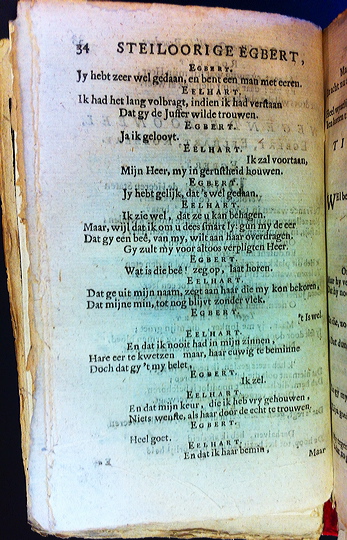 34 STEILOORIGE EGBERT,
EGBERT.
Jy hebt zeer wel gedaan, en bent een man met eeren.
EELHART.
Ik had het lang volbragt, indien ik had verstaan
Dat gy de Juffer wilde trouwen.
EGBERT.
Ja ik gelooft.
EELHART.
Ik zal voortaan,
Mijn Heer, my in gerustheid houwen.
EGBERT.
Jy hebt gelijk, dat 's wel gedaan.
EELHART.
Ik zie wel, dat ze u kan behagen.
Maar, wijl dat ik om u dees smart ly: gun my de eer
Dat gy een beê, van my, wilt aan haar overdragen.
Gy zult my voor altoos verpligten Heer.
EGBERT.
Wat is die beê? zeg op, laat horen.
EELHART.
Dat ge uit mijn naam, zegt aan haar die my kon bekoren,
Dat mijne min, tot nog blijvt zonder vlek.
EGBERT.
't Is wel.
EELHART.
En dat ik nooit had in mijn zinnen,
Hare eer te kwetzen maar, haar euwig te beminne
Doch dat gy 't my belet.
EGBERT.
Ik zel.
EELHART.
En dat mijn keur, die ik heb vry gehouwen,
Niets wenste, als haar door de echt te trouwen.
EGBERT.
Heel goet.
EELHART.
En dat ik haar bemin,
Maar